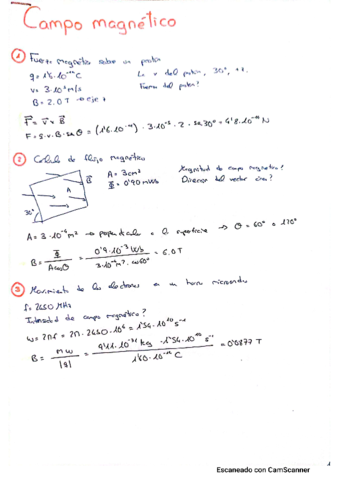 Campo magnético
① Fuerza magnética sobre un protón
q = 1'6·10⁻¹⁹ C
La v del protón, 30°, ++.
v = 3·10⁵ m/s
Fuerza del protón?
B = 2.0 T → eje z
F = q·v·B·senθ = (1'6·10⁻¹⁹)·3·10⁵·2·sen30° = 4'8·10⁻¹⁴ N
② Cálculo de flujo magnético
A = 3cm²
Magnitud de campo magnético?
B
Φ = 0'90 mWb
Dirección del vector área?
A
30°
A = 3·10⁻⁴ m² → perpendicular a la superficie → θ = 60° o 120°
B = Φ / A cosθ = 0'9·10⁻³ Wb / 3·10⁻⁴ m²·cos60° = 6.0 T
③ Movimiento de los electrones en un horno microondas
f = 2450 MHz
Intensidad de campo magnético?
ω = 2πf = 2π·2450·10⁶ = 1'54·10¹⁰ s⁻¹
B = mω / |q| = 9'11·10⁻³¹ kg · 1'54·10¹⁰ s⁻¹ / 1'60·10⁻¹⁹ C = 0'0877 T
1
Escaneado con CamScanner